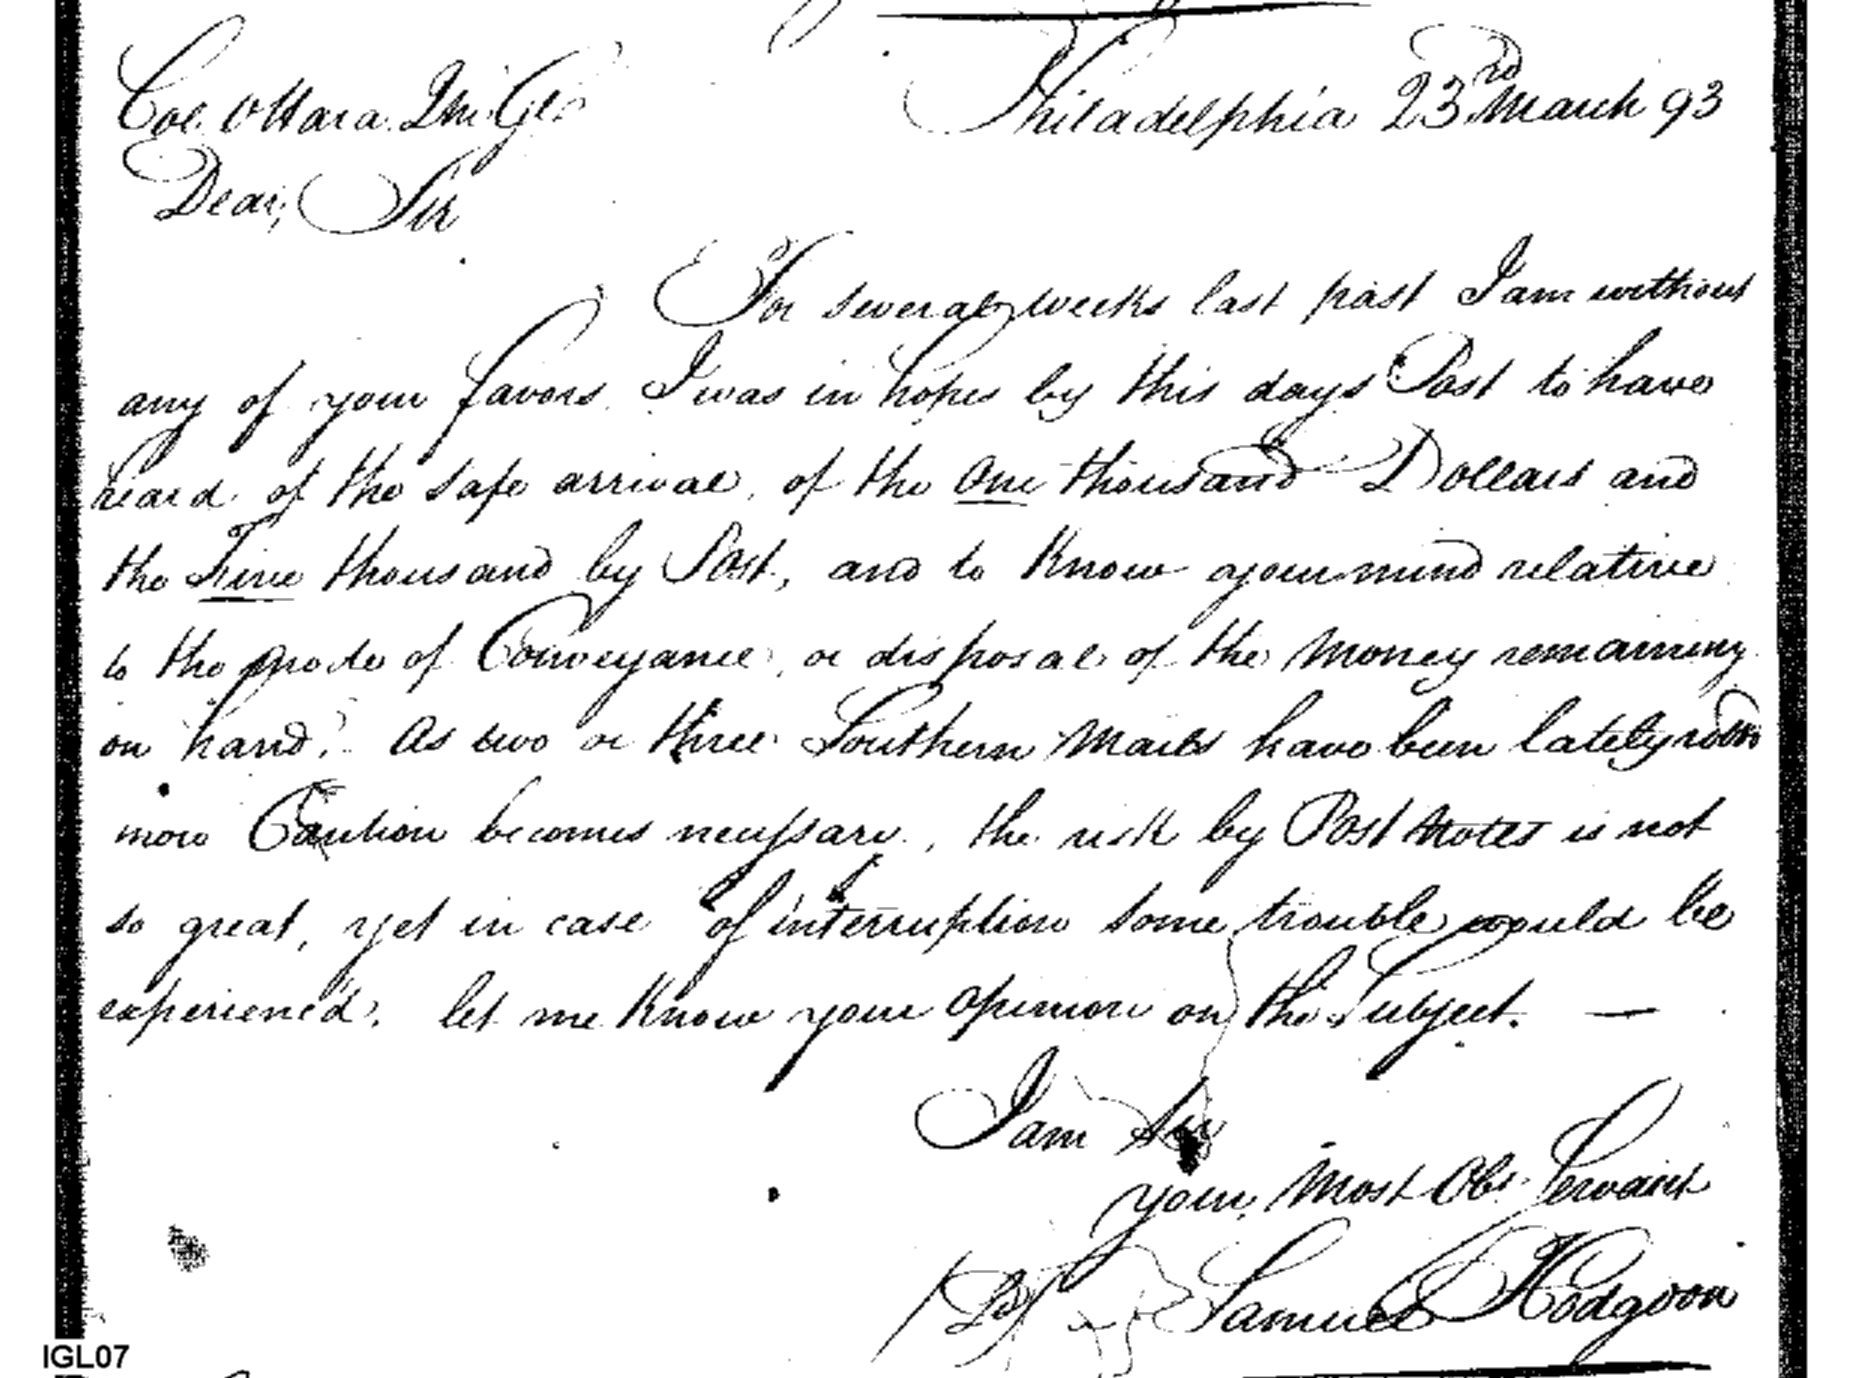 Col. OHara. Qm. Gl.
Philadelphia 23rd March 93
Dear, Sir
For several weeks last past I am without
any of your favors. I was in hopes by this days Post to have
heard of the safe arrival, of the One thousand Dollars and
the Five thousand by Post, and to know your mind relative
to the mode of Conveyance, or disposal of the Money remaining
on hand. As two or three Southern Mails have been lately
more Caution becomes necessary, the risk by Post Notes is not
so great, yet in case of interruption some trouble would be
experienced. let me know your opinion on the Subject. —
I am Sir
your, Most Obt. Servant
Samuel Hodgdon
IGL07